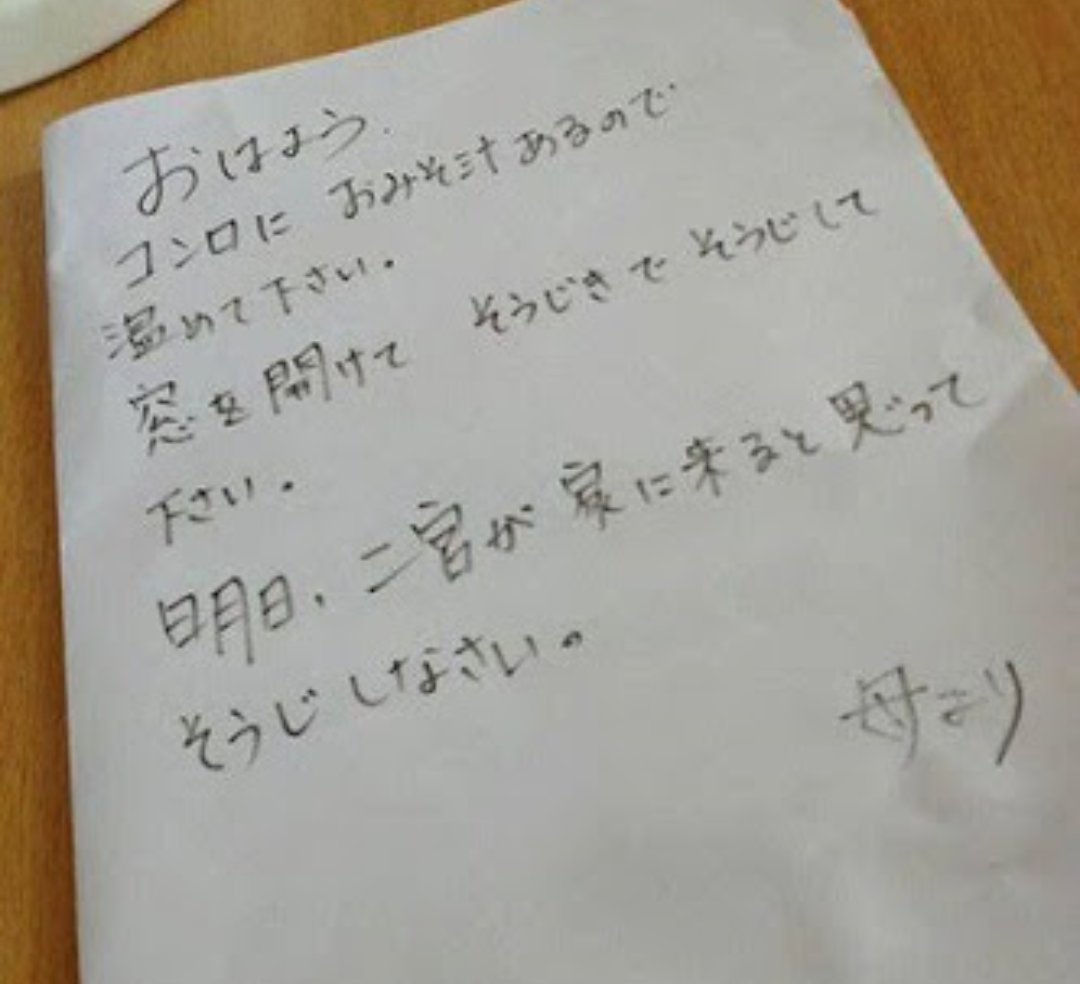 おはよう.
コンロに おみそ汁あるので
温めて下さい。
窓を開けて そうじきで そうじして
下さい。
明日、二宮が家に来ると思って
そうじしなさい。
母より